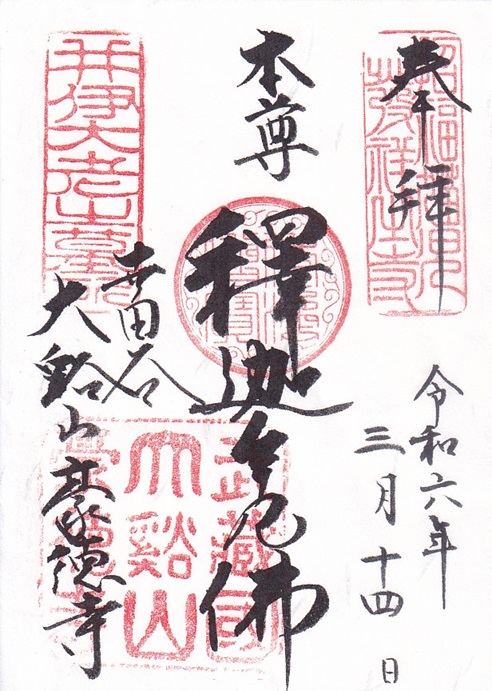 奉拝
招福猫児
發祥之寺
令和六年
三月十四日
本尊
釋迦牟尼佛
井伊大老之墓所
世田谷
大谿山豪徳寺
武藏國
大谿山
豪德寺